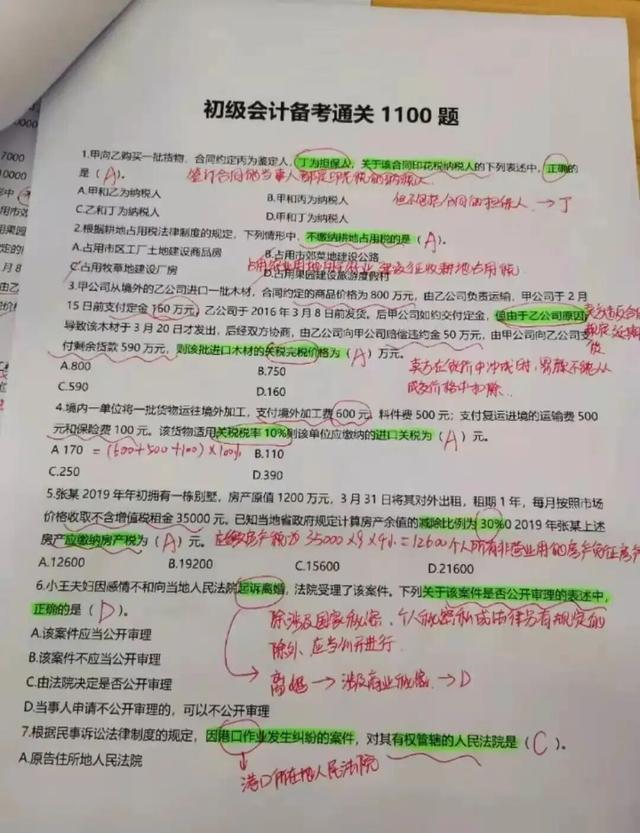 初级会计备考通关1100题
1.甲向乙购买一批货物，合同约定丙为鉴定人，丁为担保人，关于该合同印花税纳税人的下列表述中，正确的
是（A）。
签订合同的当事人都是印花税的纳税人
A.甲和乙为纳税人
B.甲和丙为纳税人
但不包括合同的担保人 → 丁
C.乙和丁为纳税人
D.甲和丁为纳税人
2.根据耕地占用税法律制度的规定，下列情形中，不缴纳耕地占用税的是（A）。
A.占用市区工厂土地建设商品房
B.占用市郊菜地建设公路
C.占用牧草地建设厂房
D.占用果园建设旅游度假村
3.甲公司从境外的乙公司进口一批木材，合同约定的商品价格为800万元，由乙公司负责运输，甲公司于2月
15日前支付定金160万元，乙公司于2016年3月8日前发货。后甲公司如约交付定金，但由于乙公司原因
导致该木材于3月20日才发出，后经双方协商，由乙公司向甲公司赔偿违约金50万元，由甲公司向乙公司支
付剩余货款590万元，则该批进口木材的关税完税价格为（A）万元。
A.800
B.750
C.590
D.160
成交价格中扣除
4.境内一单位将一批货物运往境外加工，支付境外加工费600元，料件费500元；支付复运进境的运输费500
元和保险费100元。该货物适用关税税率10%则该单位应缴纳的进口关税为（A）元。
A 170 =(600+500+100)×10%
B.110
C.250
D.390
5.张某2019年年初拥有一栋别墅，房产原值1200万元，3月31日将其对外出租，租期1年，每月按照市场
价格收取不含增值税租金35000元。已知当地省政府规定计算房产余值的减除比例为30%0 2019年张某上述
房产应缴纳房产税为（A）元。
应缴房产税为35000×9×4%=12600
A.12600
B.19200
C.15600
D.21600
6.小王夫妇因感情不和向当地人民法院起诉离婚，法院受理了该案件。下列关于该案件是否公开审理的表述中，
正确的是（D）。
除涉及国家秘密、个人秘密或法律另有规定的
除外，应当公开进行
A.该案件应当公开审理
B.该案件不应当公开审理
C.由法院决定是否公开审理
离婚 → 涉及商业秘密 → D
D.当事人申请不公开审理的，可以不公开审理
7.根据民事诉讼法律制度的规定，因港口作业发生纠纷的案件，对其有权管辖的人民法院是（C）。
A.原告住所地人民法院
港口所在地人民法院